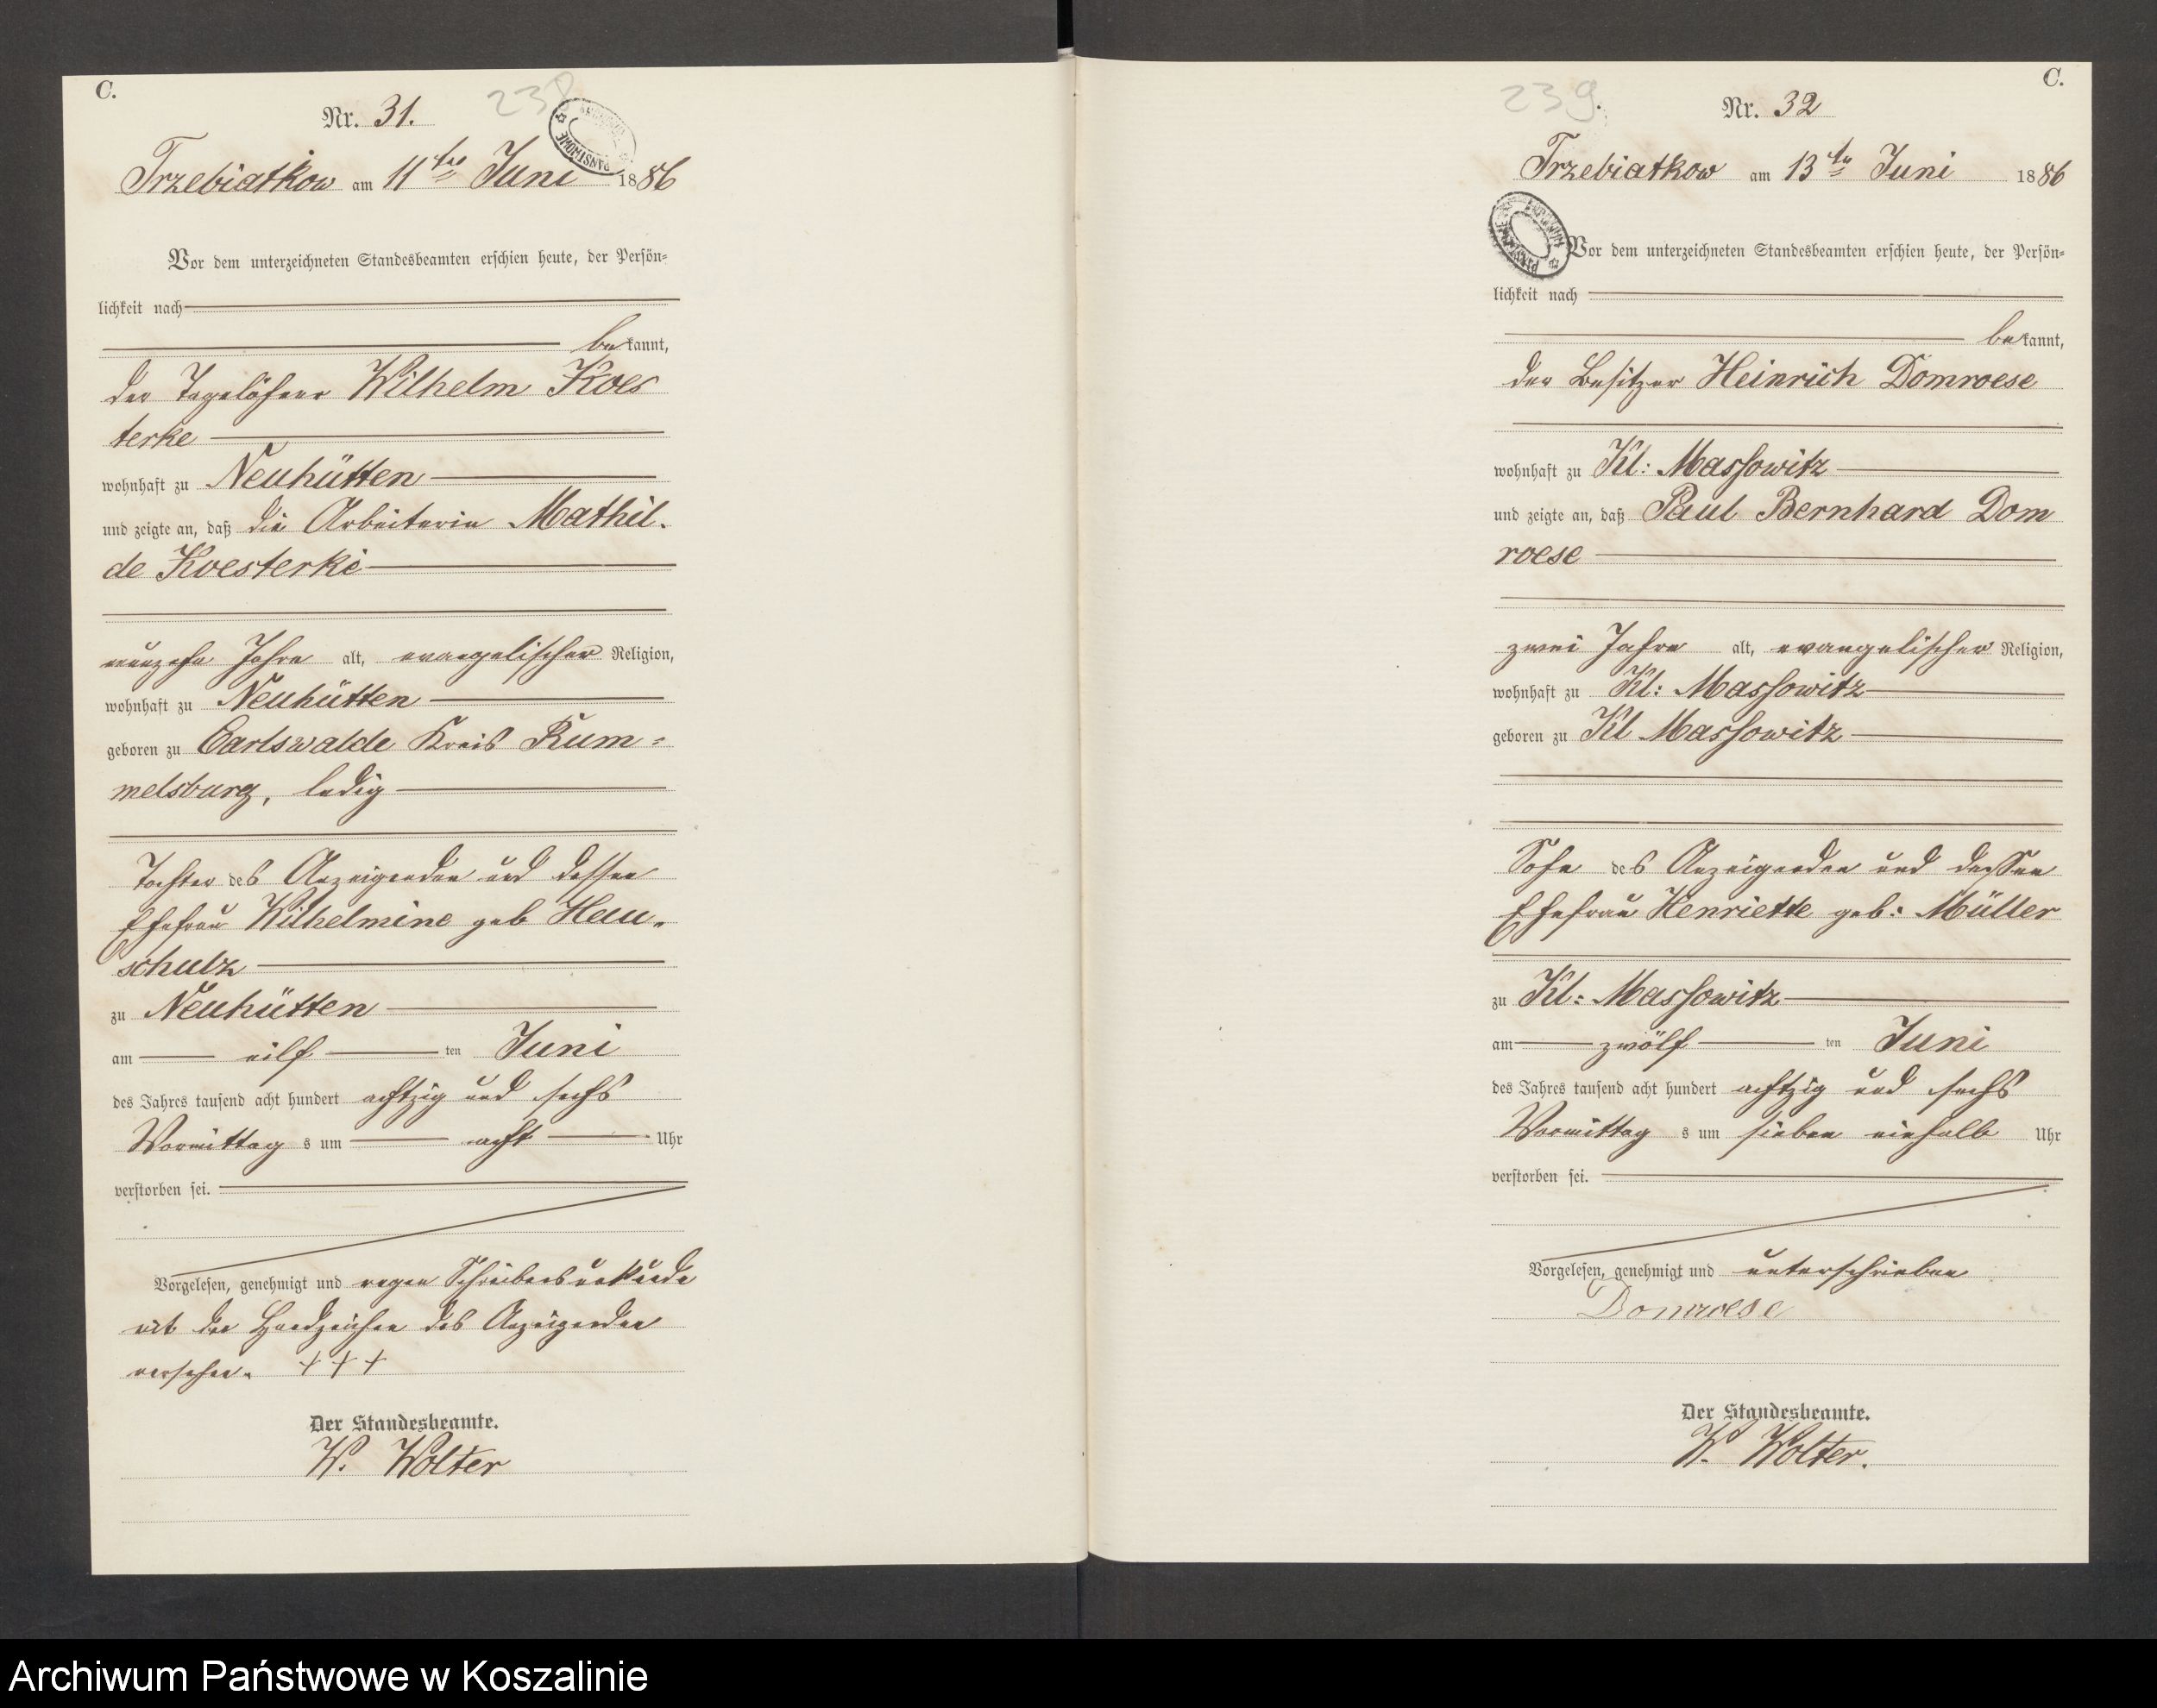 C.
238
Nr. 31.
Trzebiatkow am 11ten Juni 1886
Vor dem unterzeichneten Standesbeamten erschien heute, der Persön-
lichkeit nach
bekannt,
der Tagelöhner Wilhelm Koes
terke
wohnhaft zu Neuhütten
und zeigte an, daß die Arbeiterin Mathil-
de Koesterke
neunzehn Jahre alt, evangelischer Religion,
wohnhaft zu Neuhütten
geboren zu Carlswalde Kreis Rum-
melsburg, ledig
Tochter des Anzeigenden und dessen
Ehefrau Wilhelmine geb Hau-
schulz
zu Neuhütten
am eilf ten Juni
des Jahres tausend acht hundert achtzig und sechs
Vormittags um acht Uhr
verstorben sei.
Vorgelesen, genehmigt und wegen
mit dem Handzeichen des Anzeigenden
versehen. +++
Der Standesbeamte.
W. Wolter
C.
239.
Nr. 32
Trzebiatkow am 13ten Juni 1886
Vor dem unterzeichneten Standesbeamten erschien heute, der Persön-
lichkeit nach
bekannt,
der Besitzer Heinrich Domroese
wohnhaft zu Kl: Massowitz
und zeigte an, daß Paul Bernhard Dom
roese
zwei Jahre alt, evangelischer Religion,
wohnhaft zu Kl: Massowitz
geboren zu Kl Massowitz
Sohn des Anzeigenden und dessen
Ehefrau Henriette geb: Müller
zu Kl: Massowitz
am zwölf ten Juni
des Jahres tausend acht hundert achtzig und sechs
Vormittags um sieben einhalb Uhr
verstorben sei.
Vorgelesen, genehmigt und unterschrieben
Domroese
Der Standesbeamte.
W. Wolter.
Archiwum Państwowe w Koszalinie